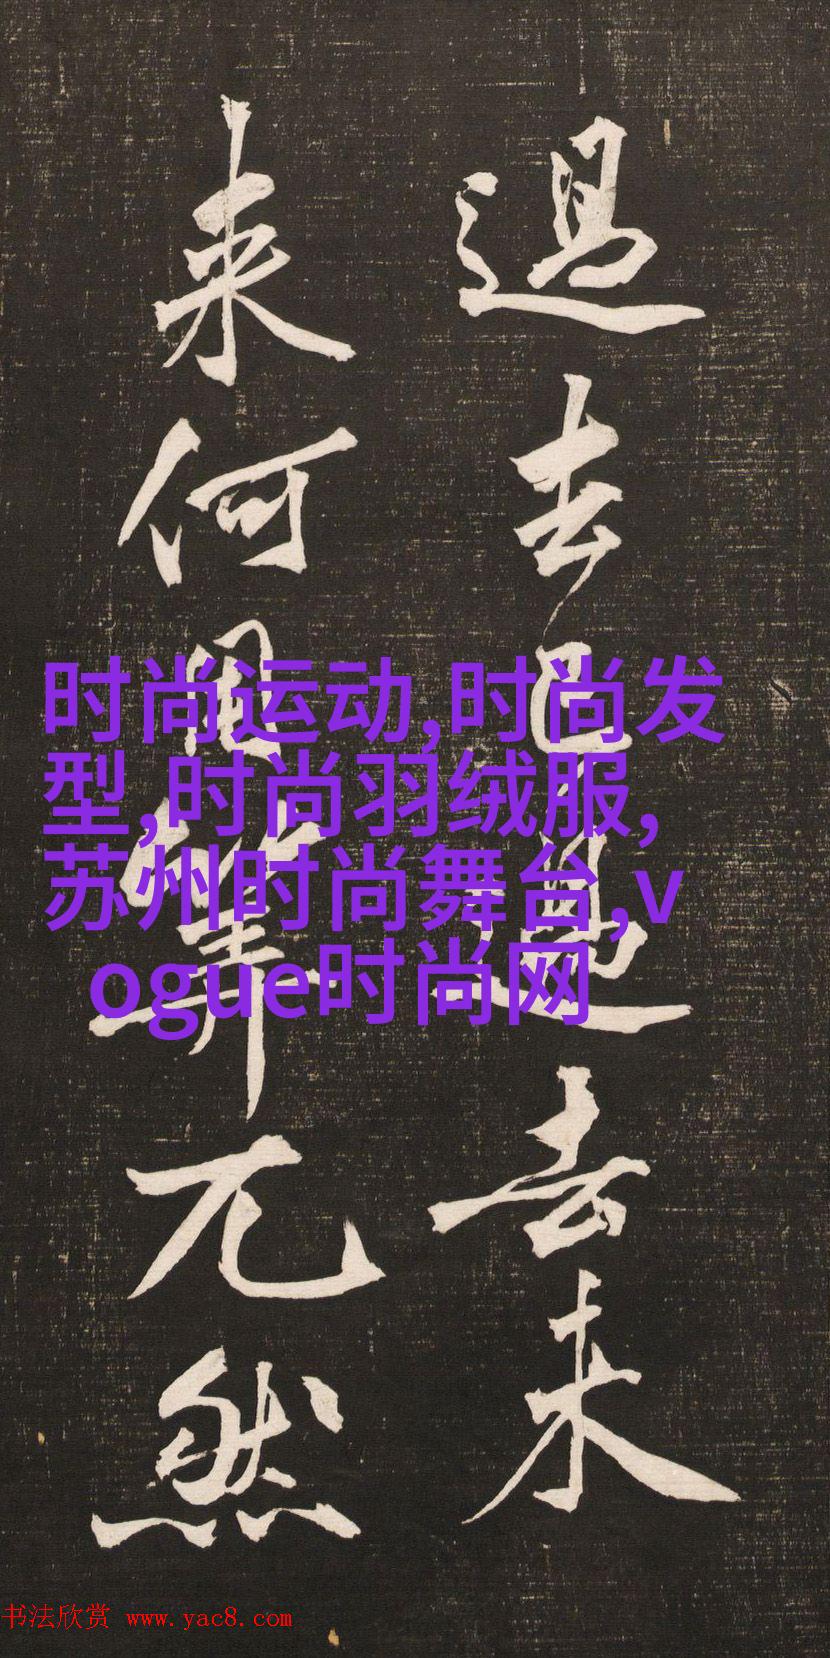 過去已過去未
来何用筭兀然
时尚运动,时尚发
型,时尚羽绒服,
苏州时尚舞台,v
ogue时尚网
书法欣赏 www.yac8.com